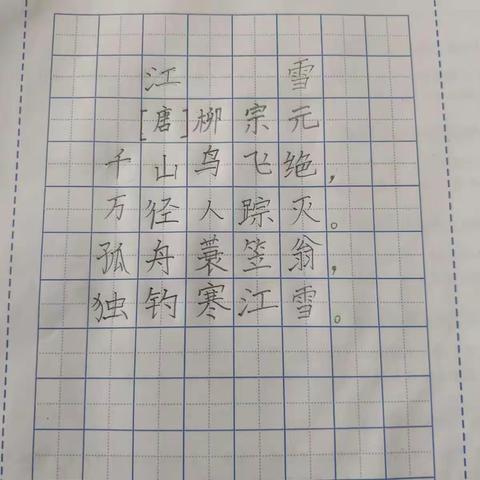 江 雪
[唐]柳宗元
千山鸟飞绝，
万径人踪灭。
孤舟蓑笠翁，
独钓寒江雪。